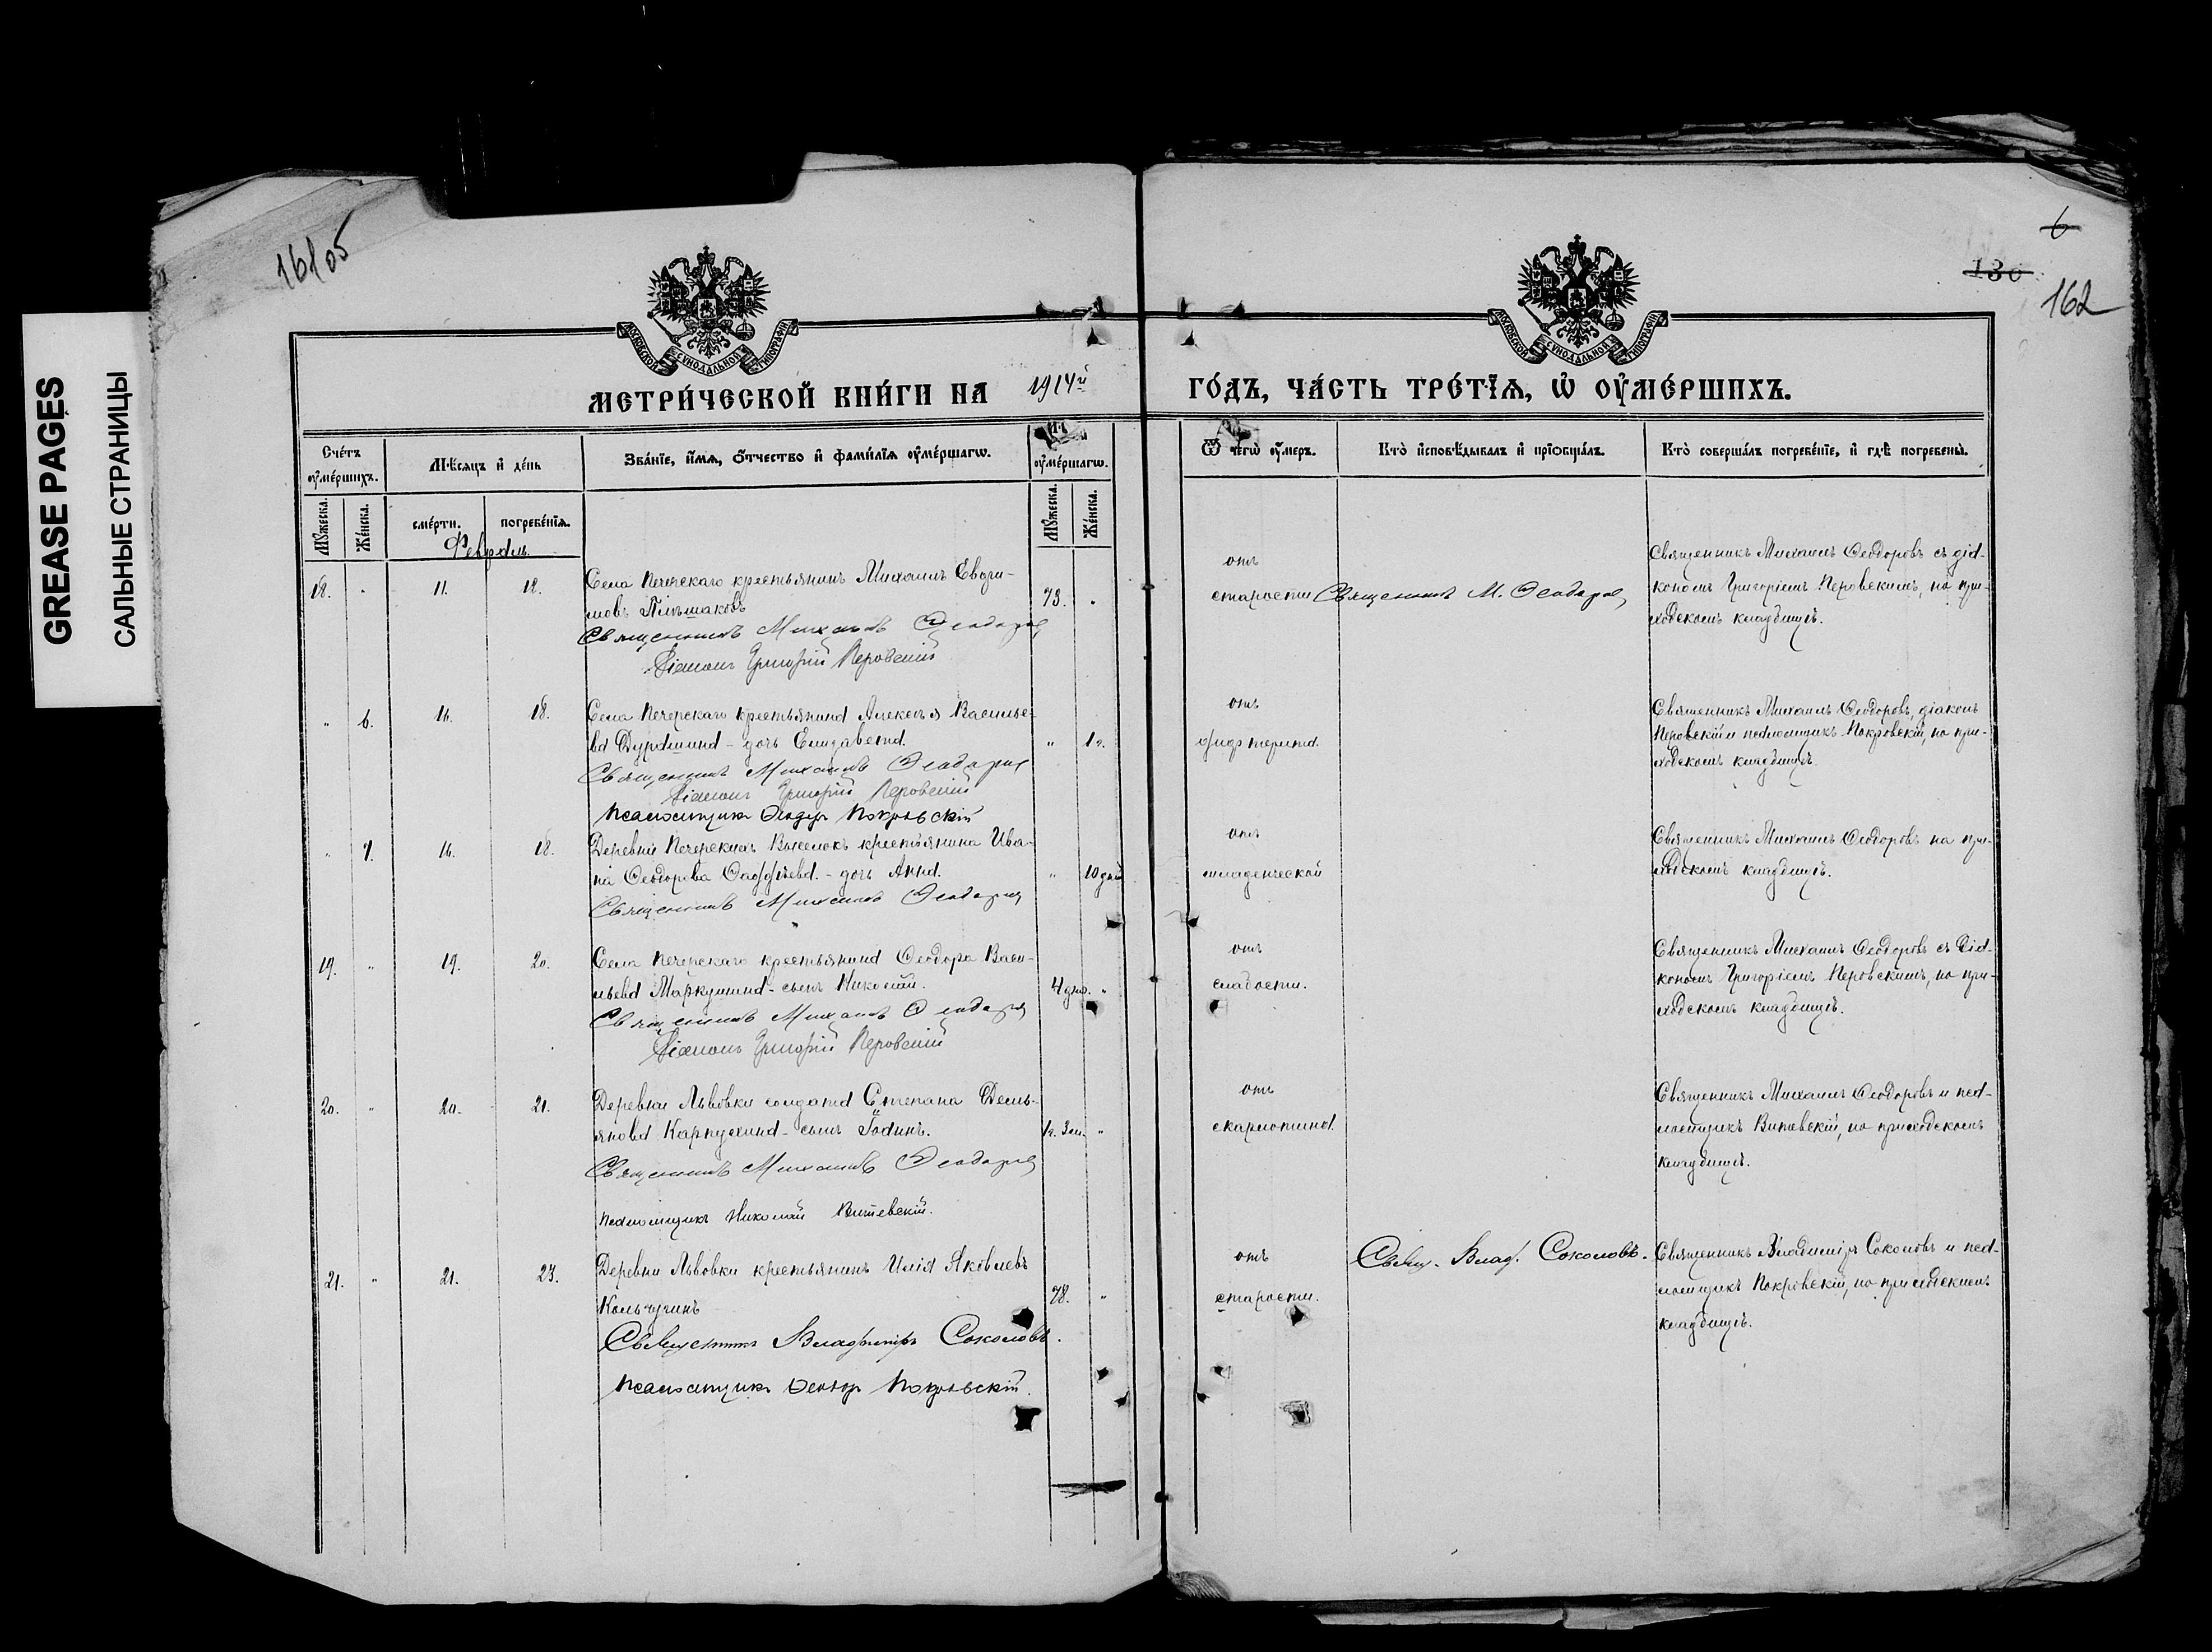 GREASE PAGES
САЛЬНЫЕ СТРАНИЦЫ
6
130
162
МОСКОВСКОЙ СѴНОДАЛЬНОЙ ТИПОГРАФІИ
МОСКОВСКОЙ СѴНОДАЛЬНОЙ ТИПОГРАФІИ
МЕТРИ́ЧЕСКОЙ КНИ́ГИ НА 1914й ГО́ДЪ, ЧА́СТЬ ТРЕ́ТЇѦ, Ѡ ОУМЕ́РШИХЪ.
Сче́тъ оуме́ршихъ.
Мѣсяцъ и де́нь
Зва́нїе, и́мѧ, о́тчество и фами́лїѧ оуме́ршагѡ.
оуме́ршагѡ.
Ѿ чегѡ̀ оу́меръ.
Кто̀ исповѣ́дывалъ и прїобща́лъ.
Кто̀ соверша́лъ погребе́нїе, и гдѣ̀ погребены̀.
Мꙋжеска.
Же́нска.
сме́рти.
погребе́нїѧ.
Мꙋжеска.
Же́нска.
Февраль.
18. " 11. 18.
Села Печерскаго крестьянинъ Михаилъ
73. "
Священникъ Михаилъ Ѳеодоровъ
Діаконъ Григорій Перовскій
отъ
старости
Священникъ М. Ѳеодоровъ
Священникъ Михаилъ Ѳеодоровъ съ діа-
кономъ Григоріемъ Перовскимъ, на при-
ходскомъ кладбищѣ.
" 6. 16. 18.
Села Печерскаго крестьянина Алексѣя Василье-
ва - дочь Елизавета.
" 1 г.
Священникъ Михаилъ Ѳеодоровъ
Діаконъ Григорій Перовскій
Псаломщикъ Ѳеодоръ Покровскій
отъ
дифтерита.
Священникъ Михаилъ Ѳеодоровъ, діаконъ
Перовскій и псаломщикъ Покровскій, на при-
ходскомъ кладбищѣ.
" 7. 16. 18.
Деревни Печерскихъ Выселокъ крестьянина Ива-
на Ѳеодорова - дочь Анна.
" 10 дней
Священникъ Михаилъ Ѳеодоровъ
отъ
младенческой
Священникъ Михаилъ Ѳеодоровъ на при-
ходскомъ кладбищѣ.
19. " 19. 20.
Села Печерскаго крестьянина Ѳеодора Васи-
льева Маркушина - сынъ Николай.
4 дня. "
Священникъ Михаилъ Ѳеодоровъ
Діаконъ Григорій Перовскій
отъ
слабости.
Священникъ Михаилъ Ѳеодоровъ съ Діа-
кономъ Григоріемъ Перовскимъ, на при-
ходскомъ кладбищѣ.
20. " 20. 21.
Деревни Львовки солдата Стефана Демь-
янова Карпухина - сынъ
1 г. 3 м. "
Священникъ Михаилъ Ѳеодоровъ
Псаломщикъ Николай Витевскій.
отъ
скарлатины.
Священникъ Михаилъ Ѳеодоровъ и пса-
ломщикъ Витевскій, на приходскомъ
кладбищѣ.
21. " 21. 23.
Деревни Львовки крестьянинъ Илія Яковлевъ
Кольчугинъ
78. "
Священникъ Владимиръ Соколовъ.
Псаломщикъ Ѳеодоръ Покровскій.
отъ
старости.
Свящ. Влад. Соколовъ.
Священникъ Владиміръ Соколовъ и пса-
ломщикъ Покровскій, на приходскомъ
кладбищѣ.